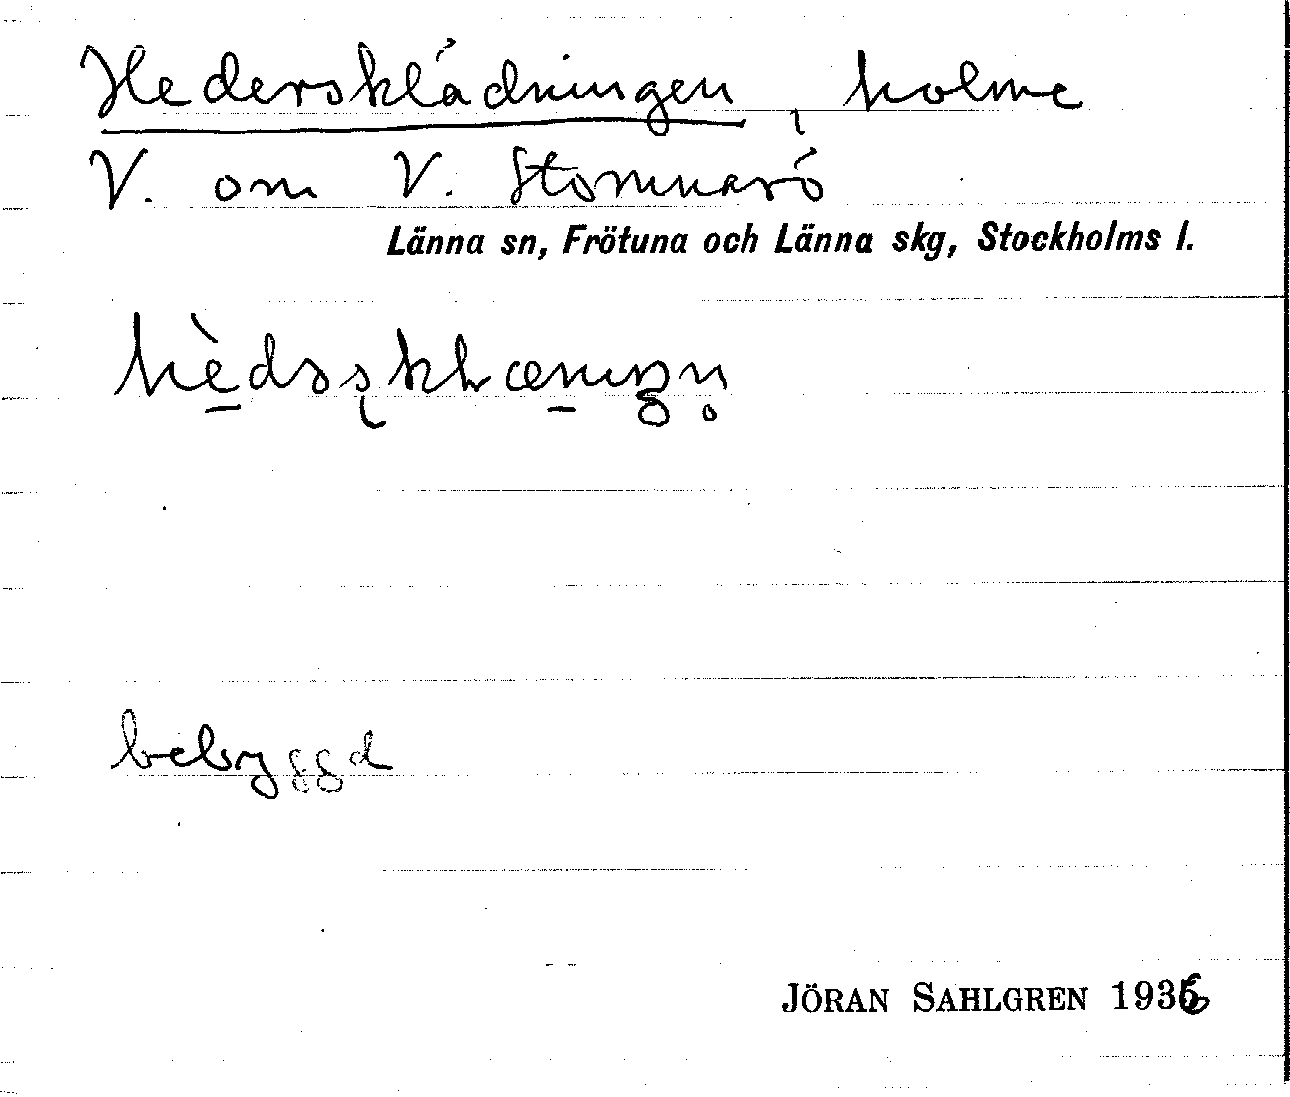 Hedersklädningen, holme
V. om V. Stomnarö
Länna sn, Frötuna och Länna skg, Stockholms l.
bebyggd
JÖRAN SAHLGREN 1936